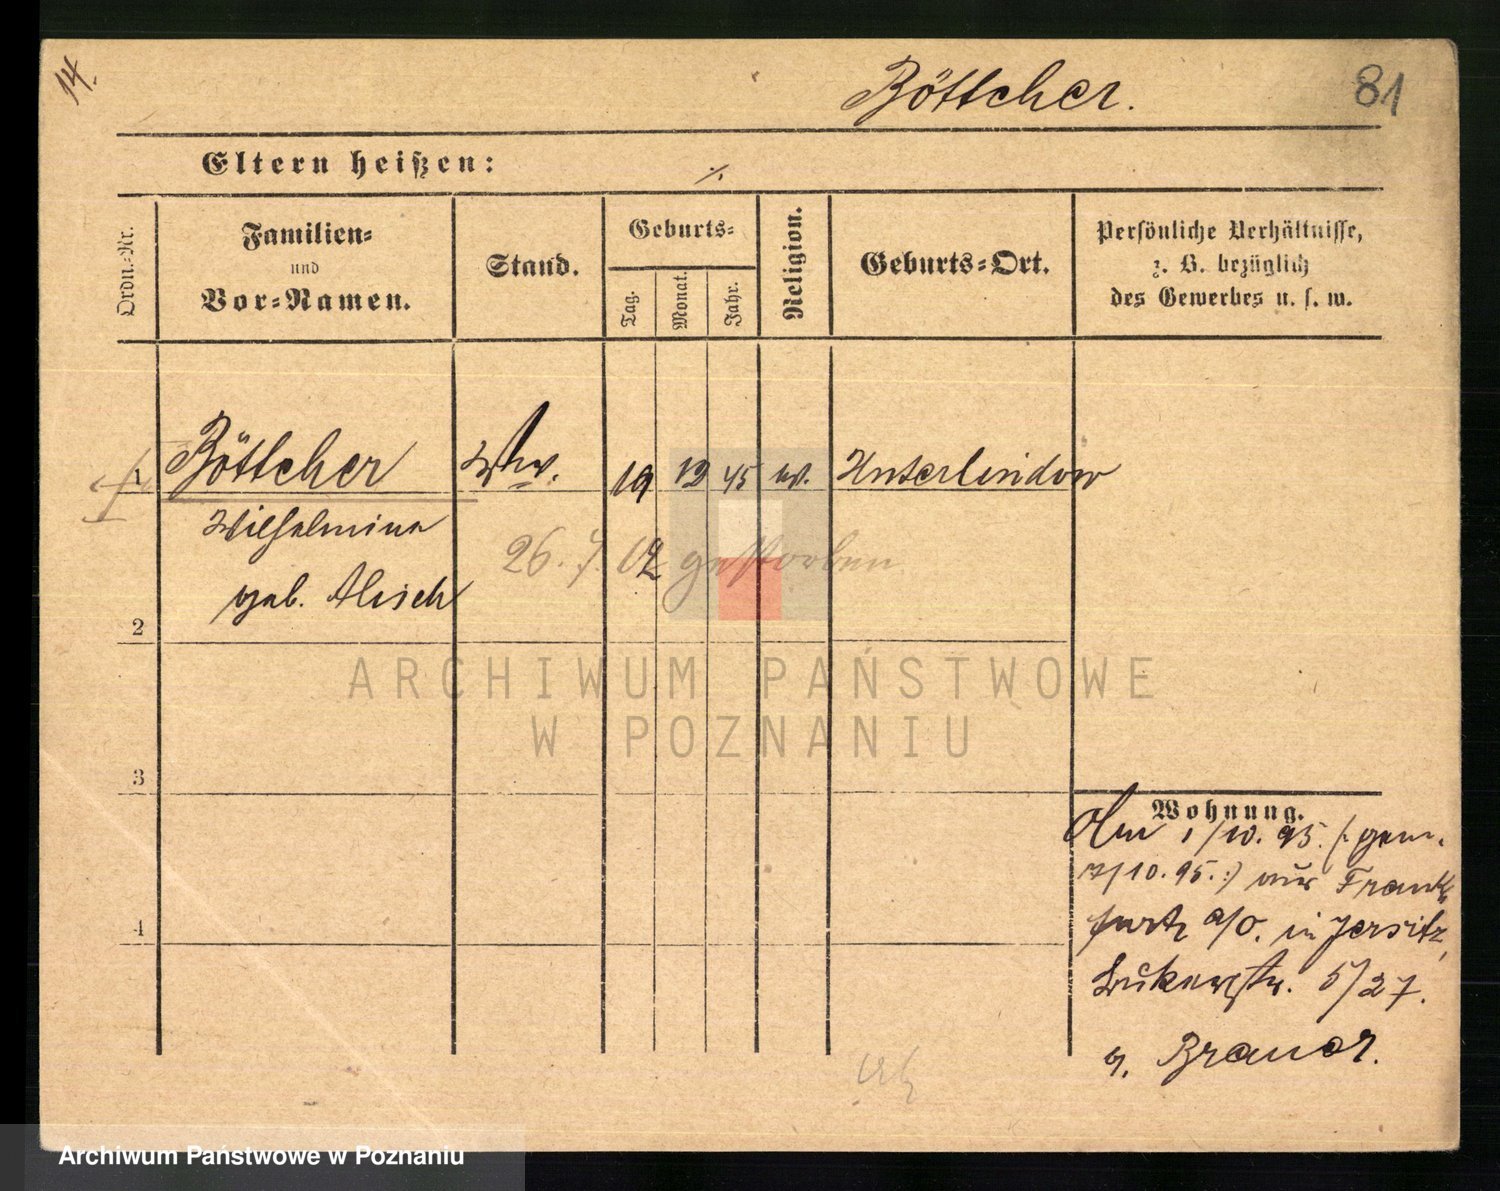 14.
Böttcher.
81
Eltern heißen:
./.
Ordn.-Nr.
Familien-
und
Vor-Namen.
Stand.
Geburts-
Tag.
Monat.
Jahr.
Religion.
Geburts-Ort.
Persönliche Verhältnisse,
z. B. bezüglich
des Gewerbes u. s. w.
1 Böttcher Wwe. 19 12 45 ev. Unterlindow
Wilhelmine
geb. Alisch
26. 7. 12 gestorben
2
3
4
Wohnung.
Am 1/10. 95. (: gem.
7/10. 95. :) aus Frank-
furt a/O. in Jersitz,
5/27.
b. Brauer.
ARCHIWUM PAŃSTWOWE
W POZNANIU
Archiwum Państwowe w Poznaniu